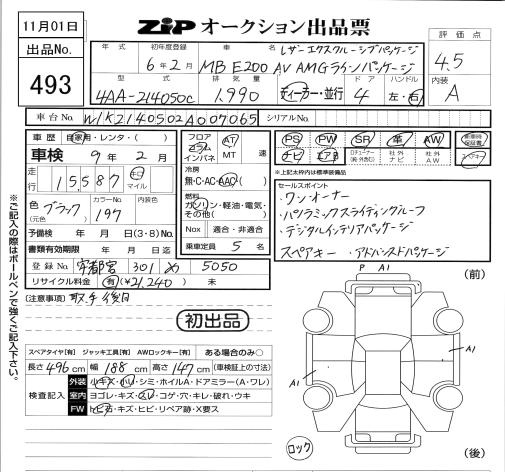 11月01日
ZiP オークション出品票
出品No.
493
年式 初年度登録 車名 評価点
6年2月 MB E200 AV AMGラインパッケージ レザーエクスクルーシブパッケージ 4.5
型式 排気量 ドア ハンドル 内装
4AA-214050C 1,990 ディーラー・並行 4 左・右 A
車台No. W1K2140502A007065 シリアルNo.
車歴 自家用・レンタ・( )
車検 9年2月
走行 15,587 キロ マイル
色 (元色) ブラック カラーNo. 197
予備検 年 月 日(3・8)No.
書類有効期限 年 月 日迄
登録No. 宇都宮 301 め 5050
リサイクル料金 有(¥21,240) 未
フロア コラム インパネ AT MT 速
冷房 無・C・AC・AAC
燃料 ガソリン・軽油・電気・その他( )
Nox 適合・非適合
乗車定員 5 名
PS PW SR 革 AW 新車時保証書
ナビ エアB TVチューナー(純・外含む) 社外ナビ 社外AW スペアキー
*上記太枠内は標準装備品
セールスポイント
・ワンオーナー
・パノラミックスライディングルーフ
・デジタルインテリアパッケージ
スペアキー ・アドバンスドパッケージ
(注意事項) 取・手 後日
初出品
スペアタイヤ[有] ジャッキ工具[有] AWロックキー[有] ある場合のみ○
長さ 496 cm 幅 188 cm 高さ 147 cm (車検証上の寸法)
検査記入
外装 小キズ・小レ・シミ・ホイルA・ドアミラー(A・ワレ)
室内 ヨゴレ・キズ・スレ・コゲ・穴・キレ・破れ・ウキ
FW トビ石・キズ・ヒビ・リペア跡・X要ス
※ご記入の際はボールペンで強くご記入下さい。
P A1
(前)
A1
A1
ロック
(後)